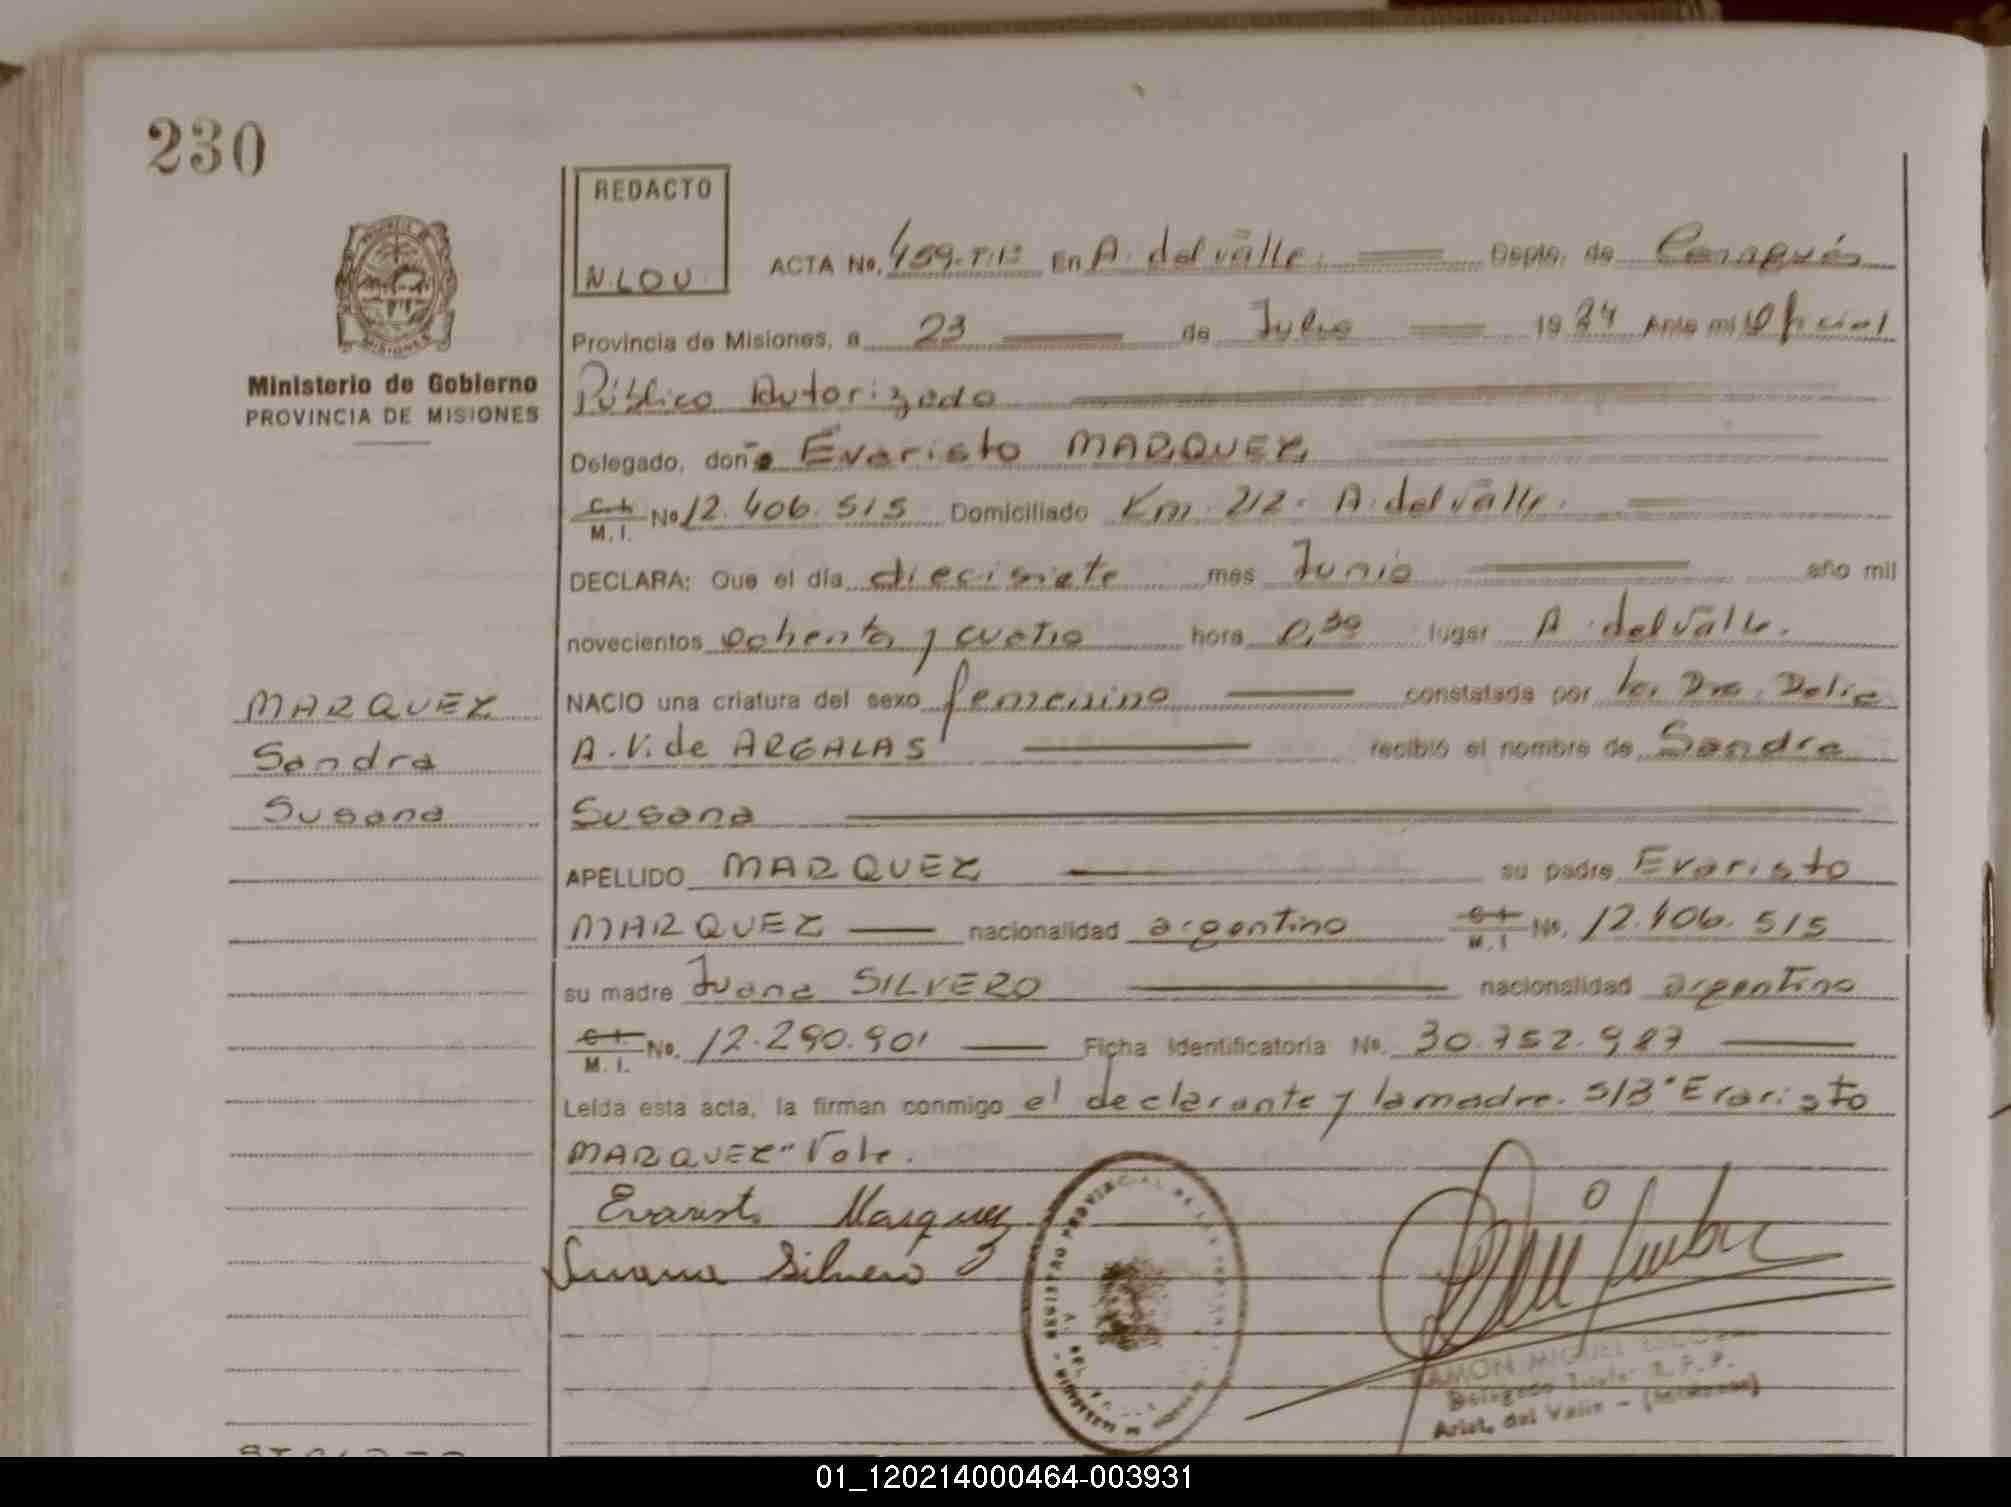 230
REDACTO
N.LOU.
PROVINCIA DE MISIONES
Ministerio de Gobierno
PROVINCIA DE MISIONES
ACTA No. 459-T.I: En A. del valle. Depto. de Cainguás
Provincia de Misiones, a 23 de Julio 1984 Ante mi Oficial
Público Autorizado
Delegado, don Evaristo MARQUEZ
C.I. M.I. No 12.406.515 Domiciliado Km. 212. A. del valle.
DECLARA: Que el día diecisiete mes Junio año mil
novecientos ochenta y cuatro hora 0,30 lugar A. del Valle.
NACIO una criatura del sexo femenino constatada por la Dra. Delia
A.V. de ARGALAS recibió el nombre de Sandra
Susana
APELLIDO MARQUEZ su padre Evaristo
MARQUEZ nacionalidad argentino C.I. M.I No. 12.406.515
su madre Juana SILVERO nacionalidad argentina
C.I. M.I. No. 12.290.901 Ficha Identificatoria No. 30.752.987
Leída esta acta, la firman conmigo el declarante y la madre. S/B "Evaristo
MARQUEZ" Vale.
MARQUEZ
Sandra
Susana
Evaristo Marquez
Juana Silvero
REGISTRO PROVINCIAL DE LAS
MISIONES
RAMON MIGUEL
Delegado Titular R.P.P.
Arist. del Valle - (Misiones)
01_120214000464-003931